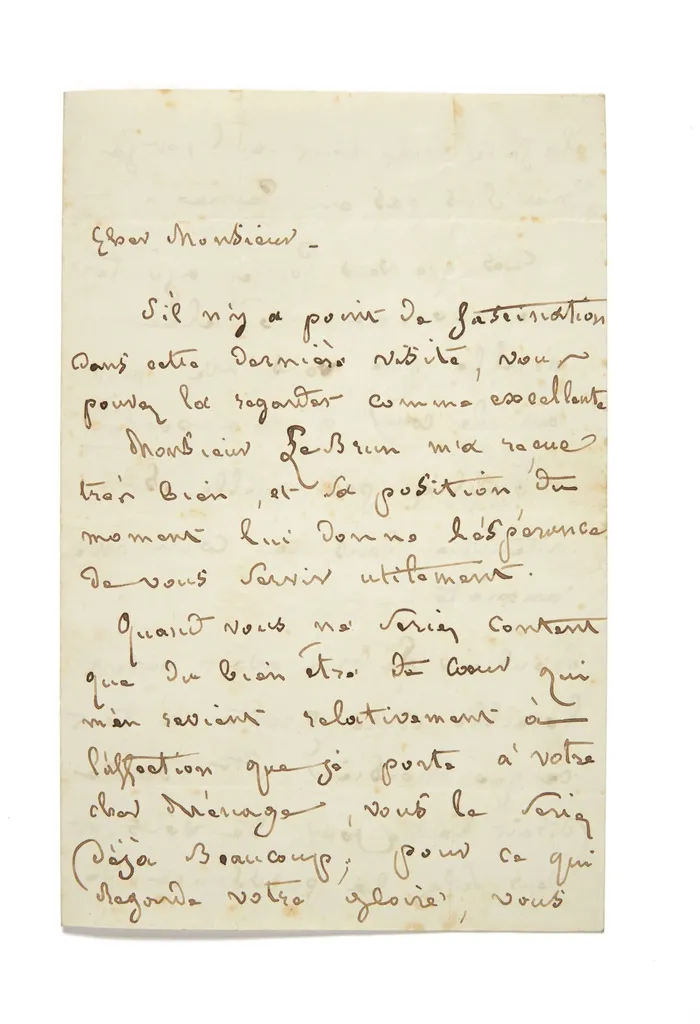 Cher Monsieur -
S'il n'y a point de fascination
dans cette dernière visite, vous
pouvez la regarder comme excellente
Monsieur LeBrun m'a reçue
très bien, et sa position du
moment lui donne l'éspérance
de vous servir utilement.
Quand vous ne seriez content
que du bien être de cœur qui
m'en revient relativement à
l'affection que je porte à votre
cher Ménage, vous le seriez
Déjà Beaucoup; pour ce qui
Regarde votre gloire, vous